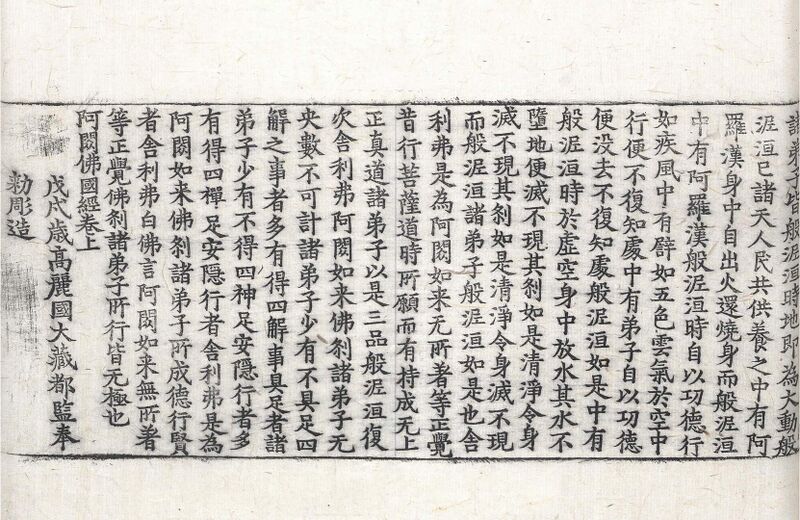 諸弟子皆般泥洹時地即為大動般
泥洹已諸天人民共供養之中有阿
羅漢身中自出火還燒身而般泥洹
中有阿羅漢般泥洹時自以功德行
如疾風中有辟如五色雲氣於空中
行便不復知處中有弟子自以功德
便沒去不復知處般泥洹如是中有
般泥洹時於虛空身中放水其水不
墮地便滅不現其刹如是清淨令身
滅不現其刹如是清淨令身滅不現
而般泥洹諸弟子般泥洹如是也舍
利弗是為阿閦如来无所著等正覺
昔行菩薩道時所願而有持成无上
正真道諸弟子以是三品般泥洹復
次舍利弗阿閦如来佛刹諸弟子无
央數不可計諸弟子少有不具足四
解之事者多有得四解事具足者諸
弟子少有不得四神足安隱行者多
有得四禪足安隱行者舍利弗是為
阿閦如来佛刹諸弟子所成德行賢
者舍利弗白佛言阿閦如来無所著
等正覺佛刹諸弟子所行皆无極也
阿閦佛國經卷上
戊戌歲高麗國大藏都監奉
勅彫造